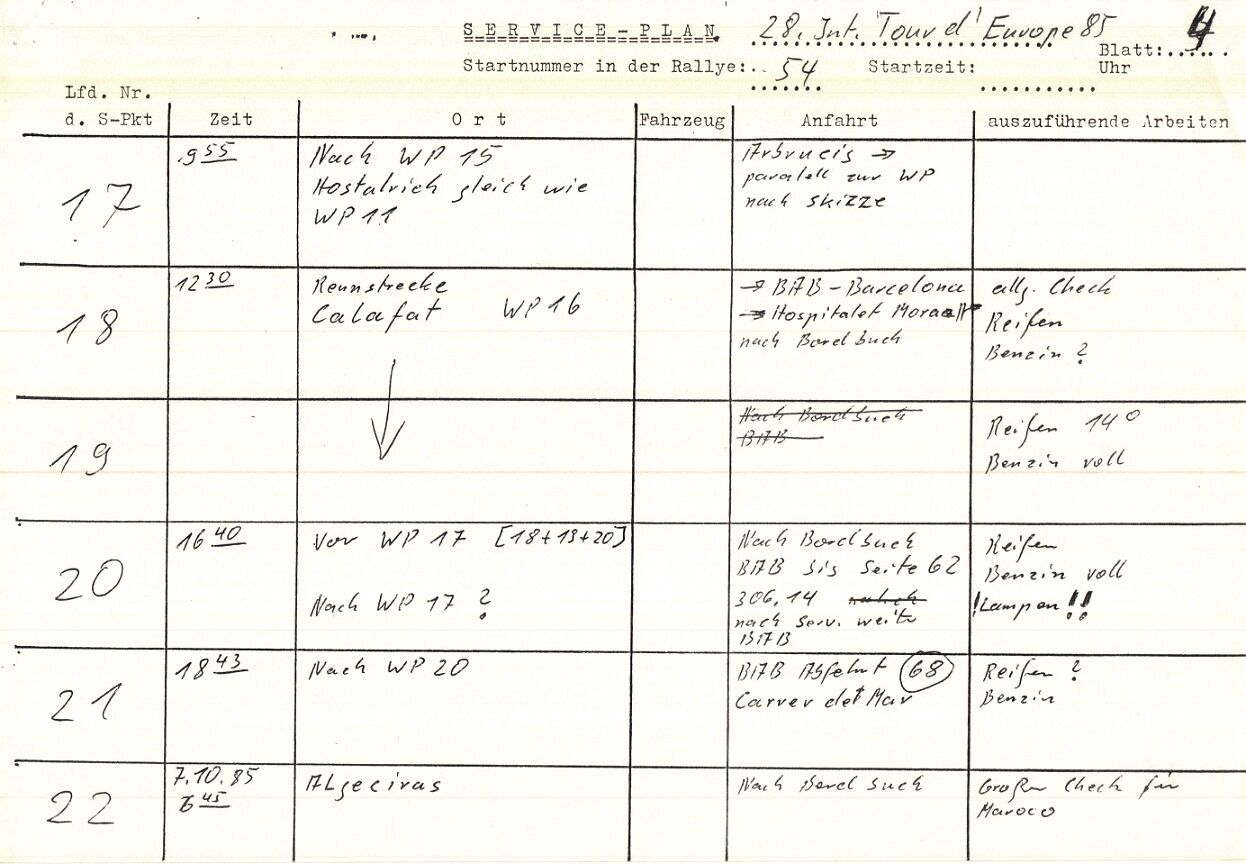 SERVICE-PLAN 28. Int. Tour d' Europe 85
Blatt: 4
Startnummer in der Rallye: 54 Startzeit: Uhr
Lfd. Nr.
d. S-Pkt Zeit Ort Fahrzeug Anfahrt auszuführende Arbeiten
17
9 55
Nach WP 15
Hostalrich gleich wie
WP 11
Arbrucis →
paralell zur WP
nach Skizze
18
12 30
Rennstrecke
Calafat WP 16
→ BAB - Barcelona
→ Hospitalet
nach Bordbuch
allg. Check
Reifen
Benzin ?
19
Nach Bordbuch
BAB
Reifen 14°
Benzin voll
20
16 40
Vor WP 17 [18 + 19 + 20]
Nach WP 17 ?
Nach Bordbuch
BAB bis Seite 62
306,14
nach Serv. weiter
BAB
Reifen
Benzin voll
! Lampen !!
21
18 43
Nach WP 20
BAB Abfahrt 68
Carrer del Mar
Reifen ?
Benzin
22
7.10.85
6 45
Algeciras
Nach Bordbuch
Großer Check für
Maroco